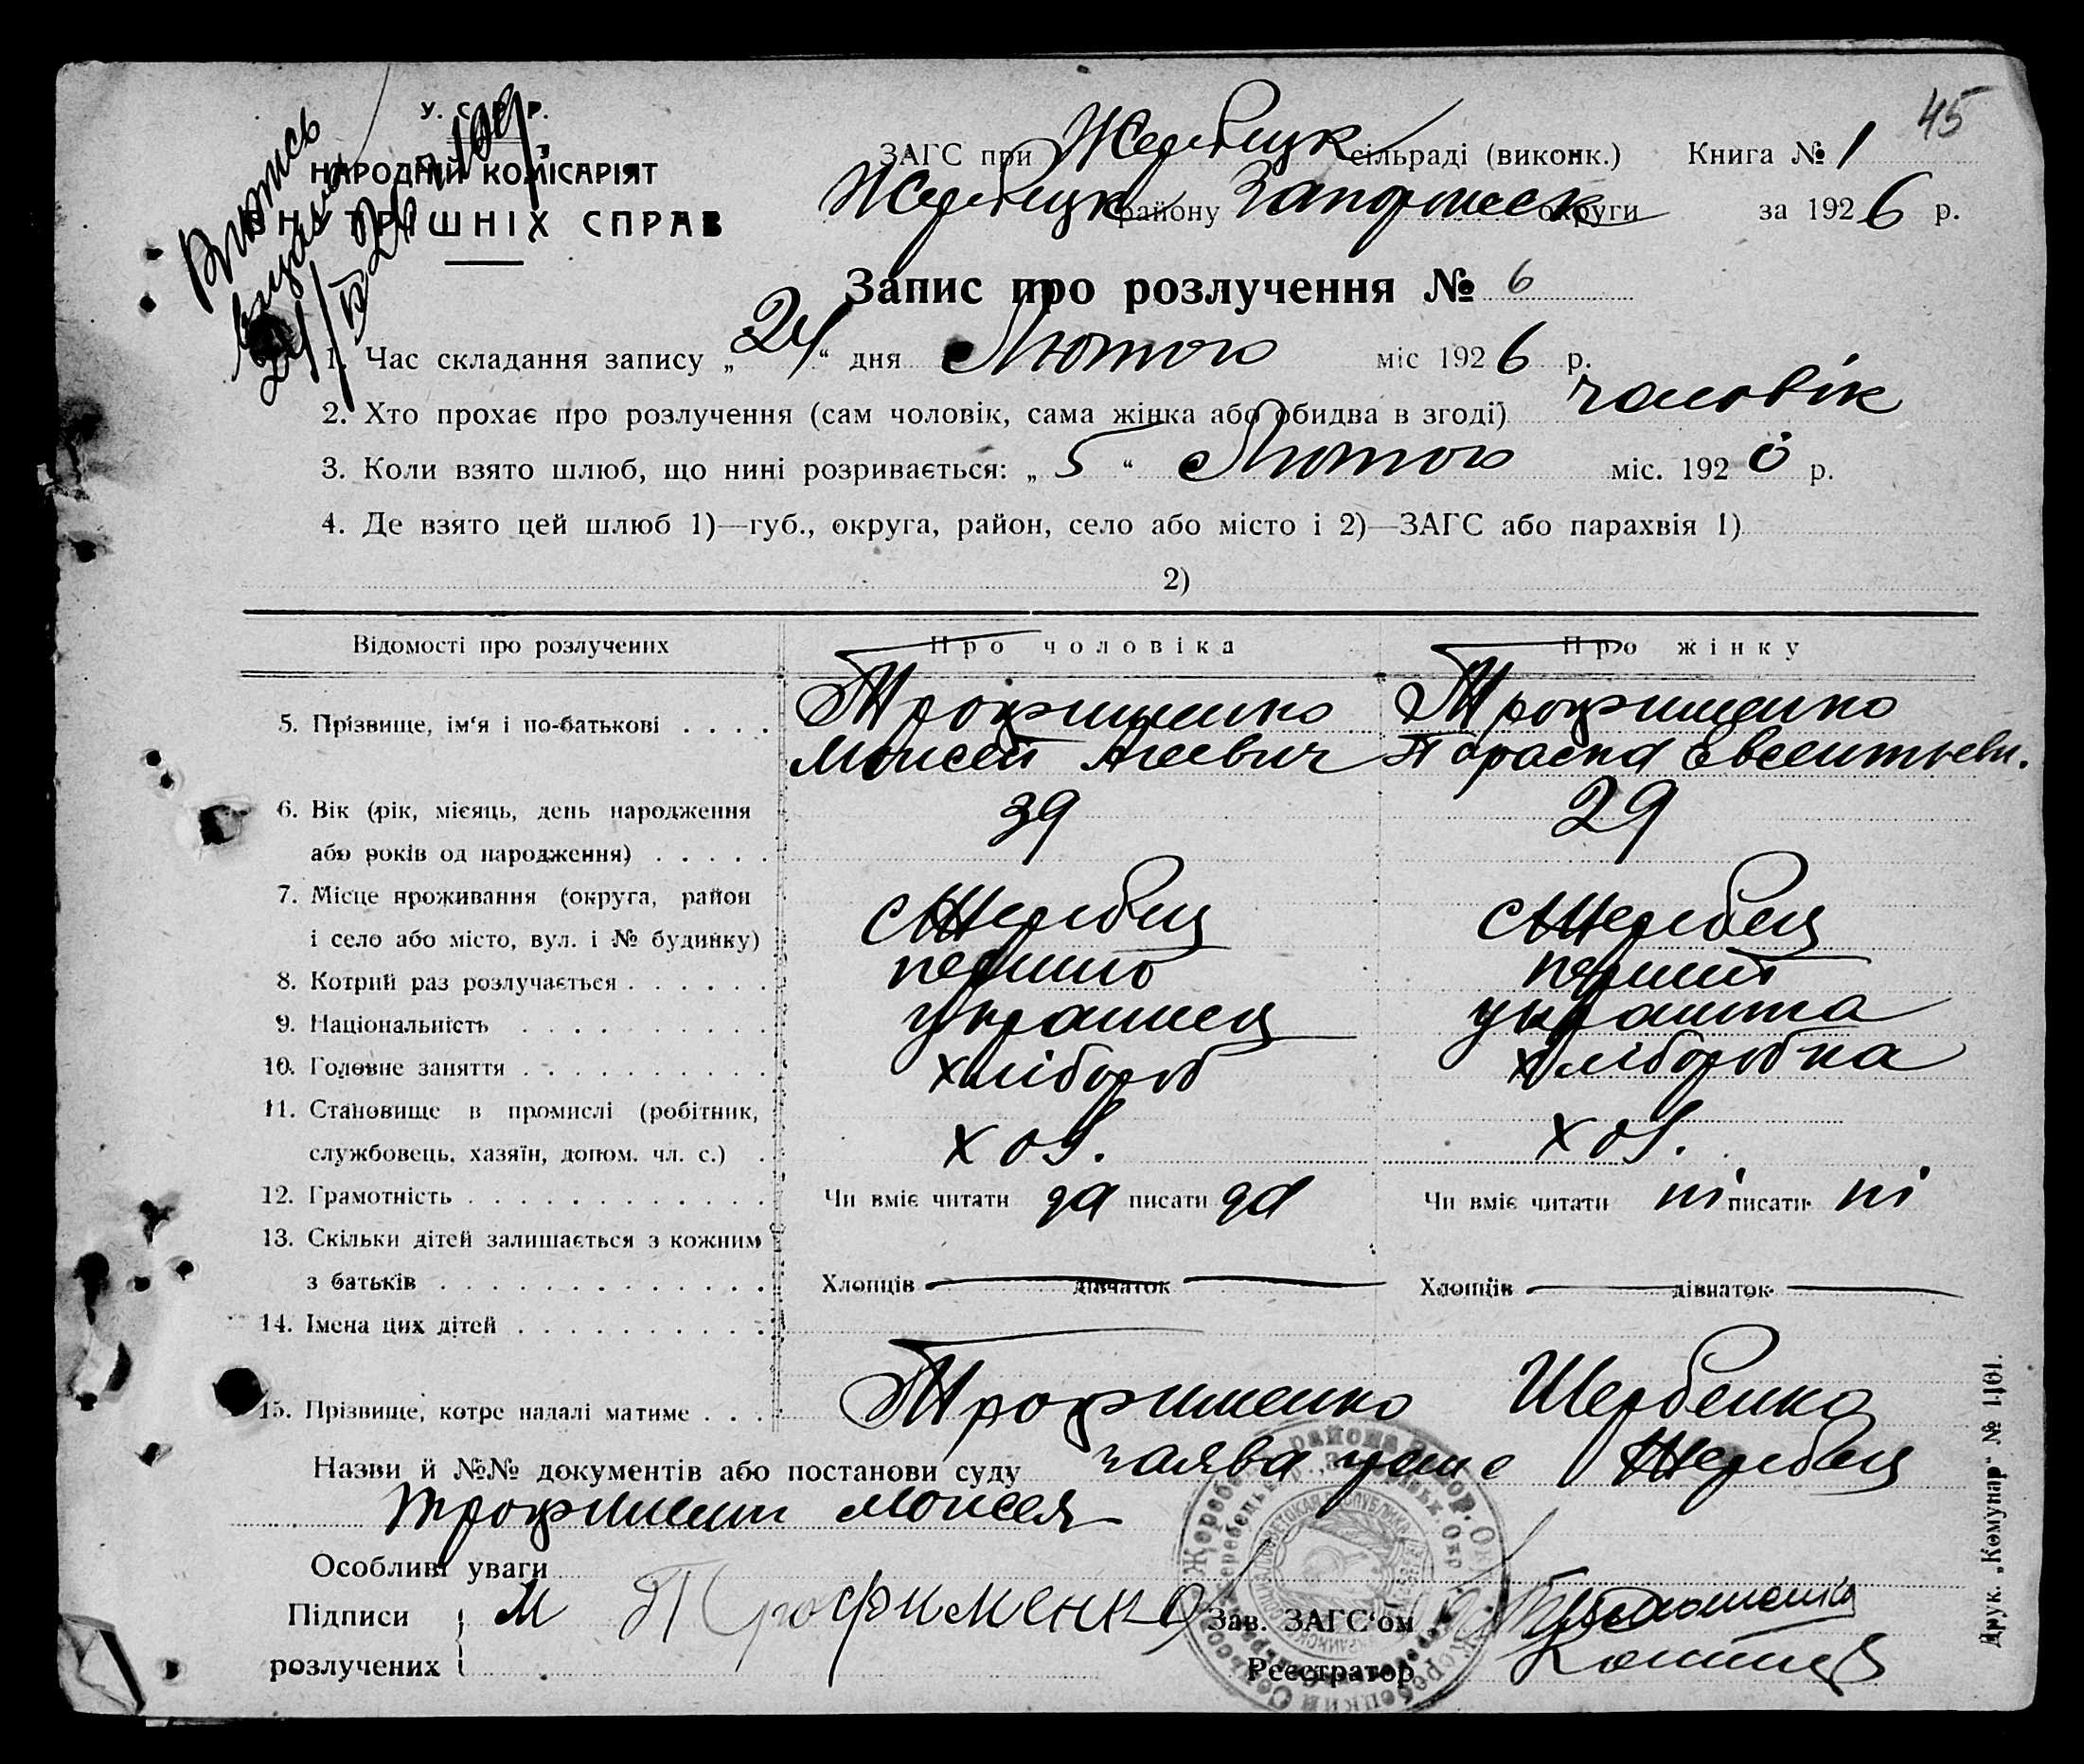 45
У. С. Р. Р.
НАРОДНІЙ КОМІСАРІЯТ
ВНУТРІШНІХ СПРАВ
Випись
ЗАГС при Жеребецк сільраді (виконк.) Книга № 1
Жеребецк району Запоріжск округи за 1926 р.
Запис про розлучення № 6
1. Час складання запису „24“ дня Лютого міс 1926 р.
2. Хто прохає про розлучення (сам чоловік, сама жінка або обидва в згоді) чоловік
3. Коли взято шлюб, що нині розривається: „5“ Лютого міс. 1920 р.
4. Де взято цей шлюб 1)—губ., округа, район, село або місто і 2)—ЗАГС або парахвія 1)
2)
Відомості про розлучених Про чоловіка Про жінку
5. Прізвище, ім‘я і по-батькові Трофименко Трофименко
Моисей Параска
6. Вік (рік, місяць, день народження 39 29
або років од народження)
7. Місце проживання (округа, район
і село або місто, вул. і № будинку) с Жеребец с Жеребец
8. Котрий раз розлучається
9. Національність українец
10. Головне заняття хлібороб хліборобка
11. Становище в промислі (робітник,
службовець, хазяїн, допом. чл. с.) хоз. хоз.
12. Грамотність Чи вміє читати да писати да Чи вміє читати ні писати ні
13. Скільки дітей залишається з кожним
з батьків Хлопців — дівчаток — Хлопців — дівчаток —
14. Імена цих дітей
15. Прізвище, котре надалі матиме Трофименко
Назви й №№ документів або постанови суду заява Жеребец
Моисея
Особливі уваги
Підписи М Трофименко Зав. ЗАГС‘ом
розлучених Реєстратор
Друк. „Комунар“ № 1401.